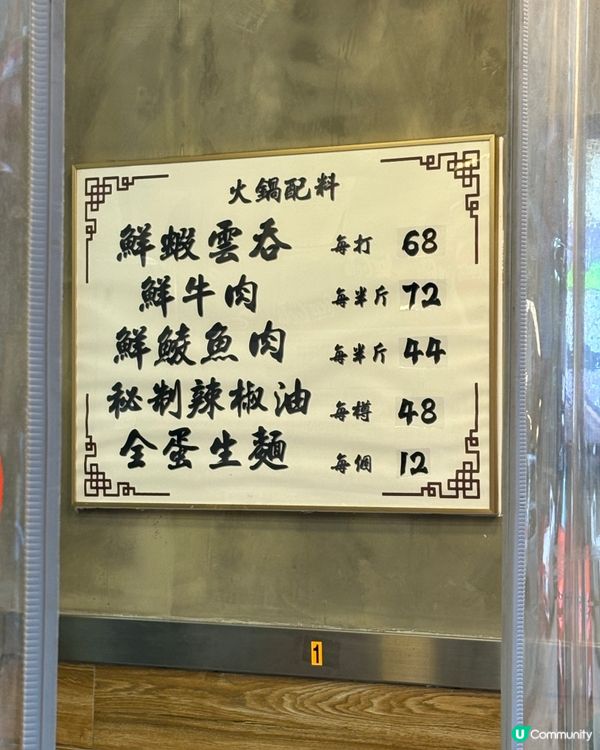 火鍋配料
鮮蝦雲吞 每打 68
鮮牛肉 每半斤 72
鮮鯪魚肉 每半斤 44
秘制辣椒油 每樽 48
全蛋生麵 每個 12
1
U Community